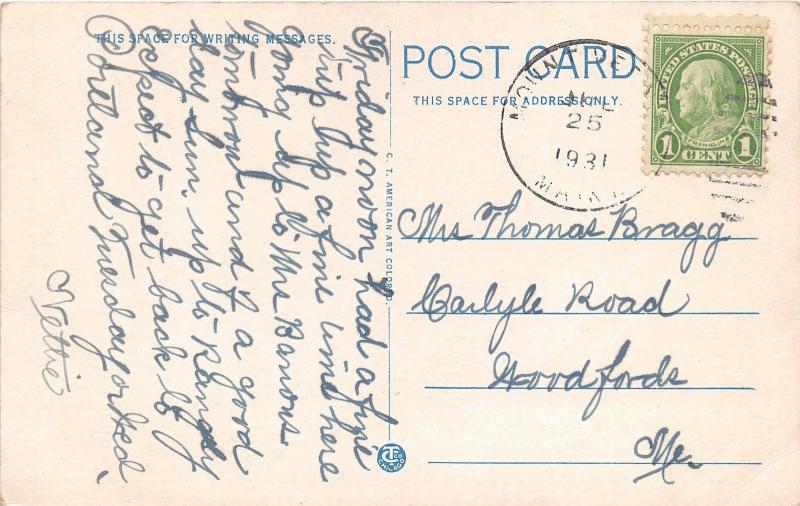 THIS SPACE FOR WRITING MESSAGES.
Friday noon had a fine
trip up a fine time here
Going up to Mrs Barrons
tomorrow and if a good
day Sun. up to Rangely
Expect to get back to
Portland Tuesday or Wed.
Nettie
C. T. AMERICAN ART COLORED.
CHICAGO
POST CARD
THIS SPACE FOR ADDRESS ONLY.
25
1931
UNITED STATES POSTAGE
FRANKLIN
1 CENT 1
Mrs Thomas Bragg
Carlyle Road
Woodfords
Me.